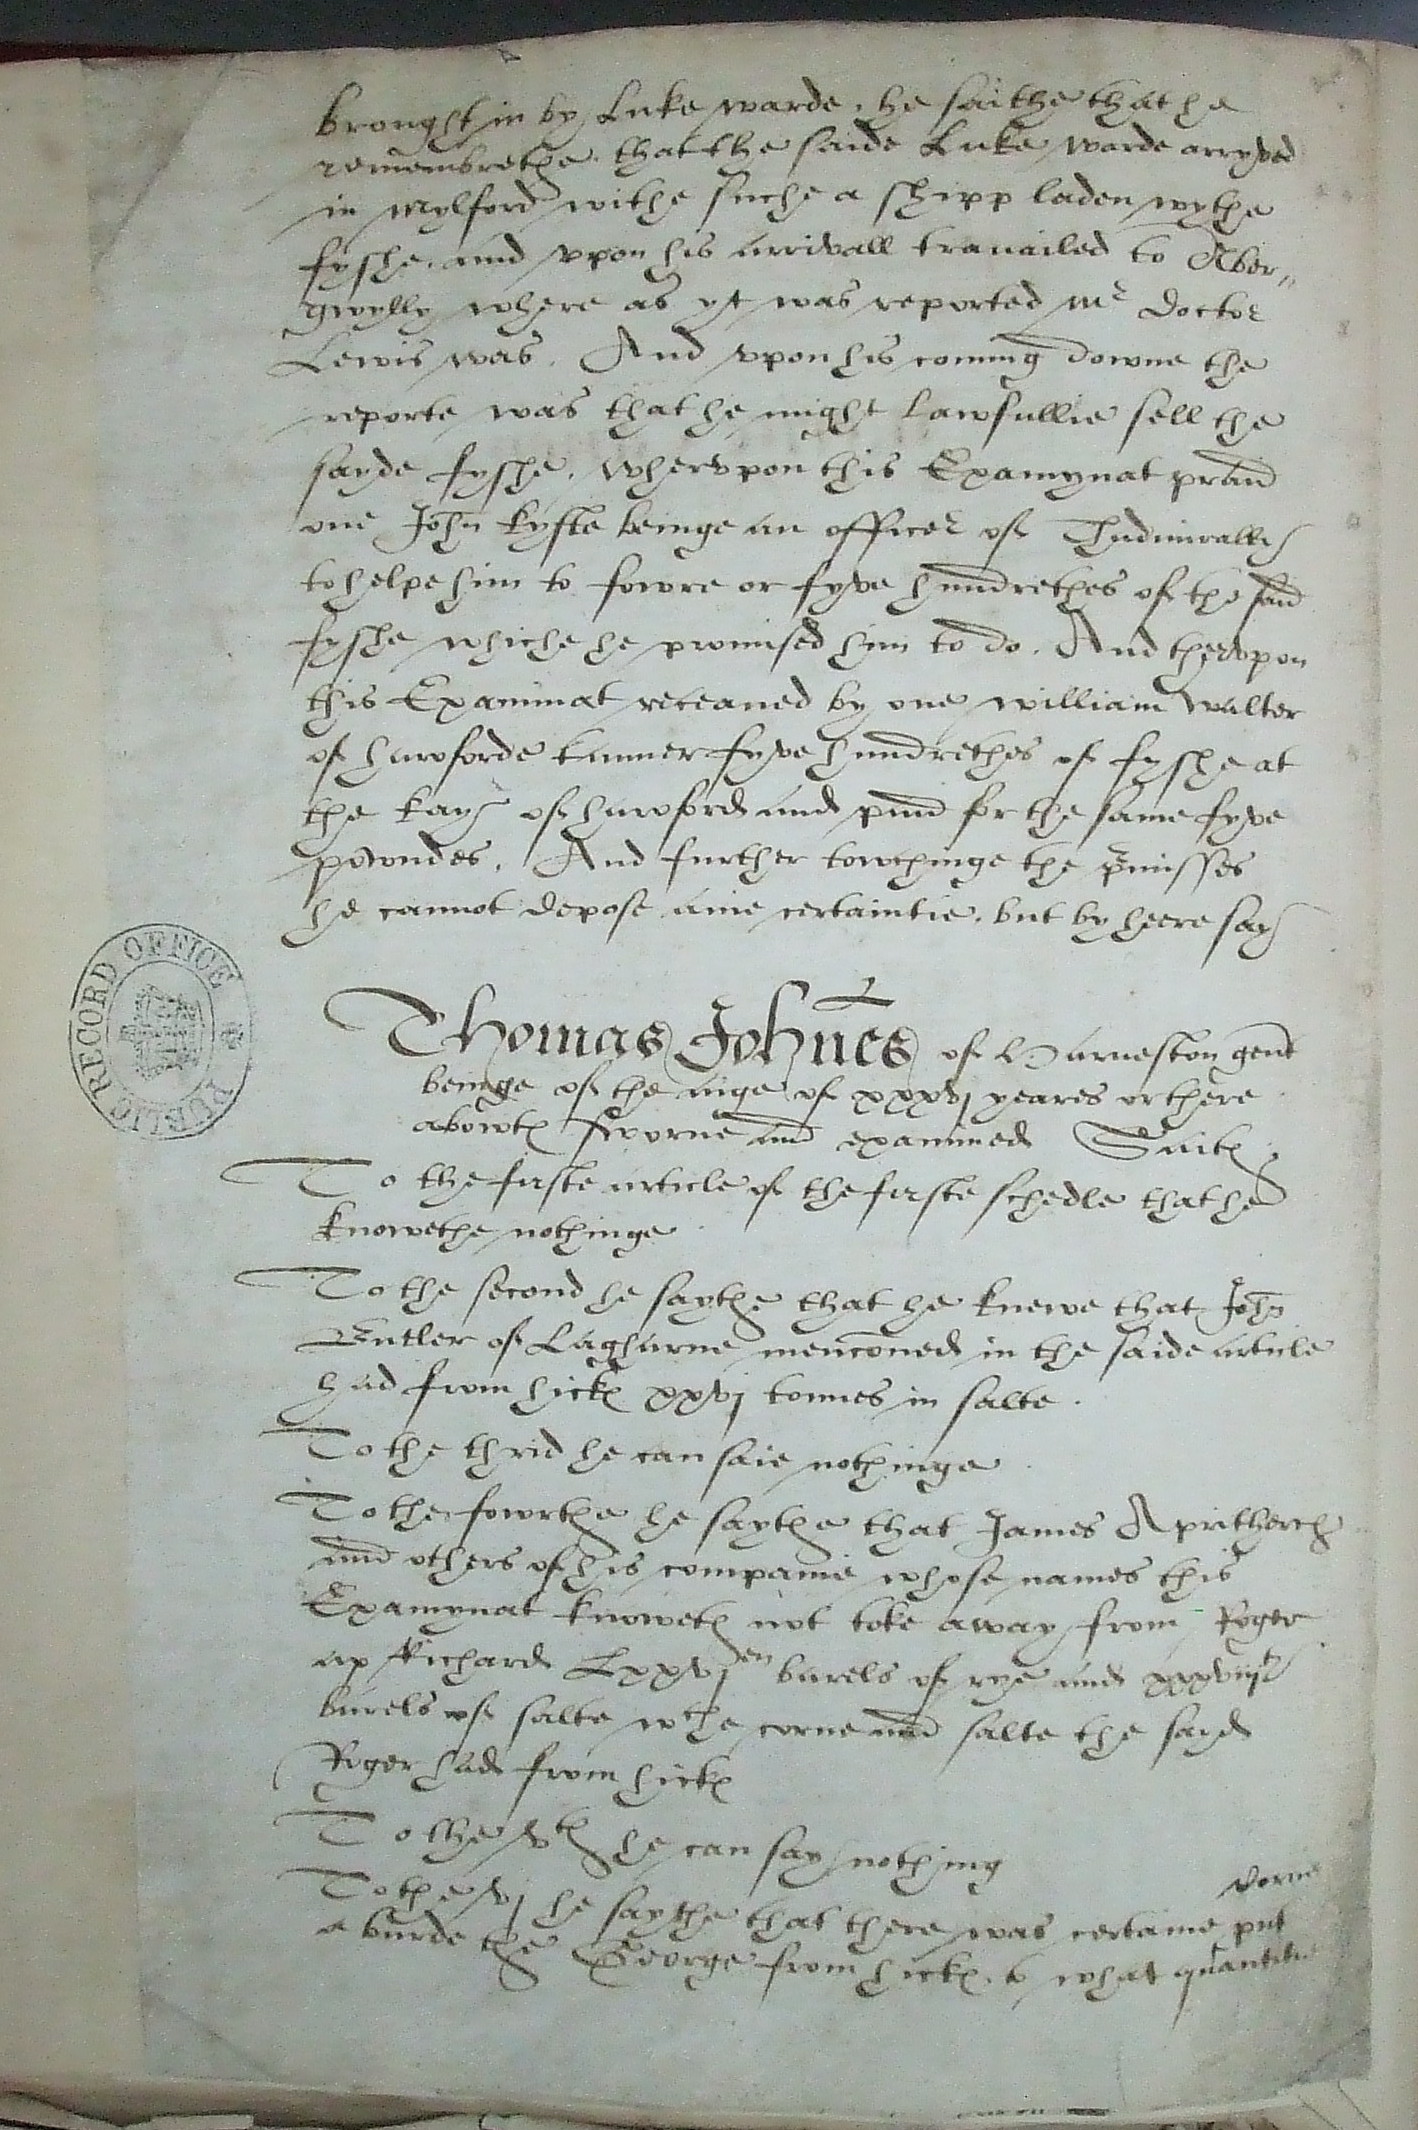 brought in by Luke warde. he saithe that he
remembrethe that the saide Luke warde arryved
in Mylford withe suche a shipp laden wythe
fyshe, and vpon his arrivall travailed to Aber〃
gwylly where as yt was reported Mr doctor
Lewis was. And vpon his coming downe the
reporte was that he might lawfullie sell the
sayde fyshe. Whervpon this Examynat praid
one John kyfte beinge an officer of Thadmiralls
to helpe him to fowre or fyve hundrethes of the said
fyshe whiche he promised him to do. And thervpon
this Examinat receaued by one william walter
of hawforde tanner fyve hundrethes of fyshe at
the kay of hawford and paid for the same fyve
powndes. And further towchinge the pmisses
he cannot depose anie certaintie. but by heere say
Thomas Johnes of Harneston gent
beinge of the aige of xxxvj yeares or there
abowte sworne and examined Saith
To the firste article of the firste schedle that he
knowethe nothinge
To the second he saythe that he knewe that John
Butler of Lagharne menconed in the saide article
had from hicks xxvj tonnes in salte.
To the thrid he can saie nothinge
To the fowrthe he saythe that James Apritherch
and others of his companie whose names this
Examynat knoweth not toke away from Roger
ap Richard Lxxvj en barels of rye and xxxviijt
barels of salte wche corne and salte the sayd
Roger had from hicks
To the vth he can say nothing
To the vj he saythe that there was certaine corne put
a burde the George from hicks. but what quantitie
PUBLIC RECORD OFFICE